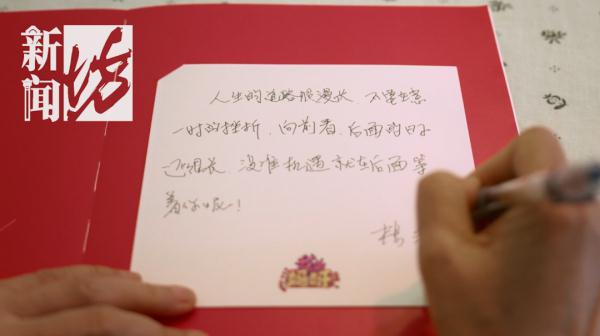 新闻坊
人生的道路很漫长,不要在意
一时的挫折,向前看,后面的日子
还很长,没准机遇就在后面等
着你呢!
杨